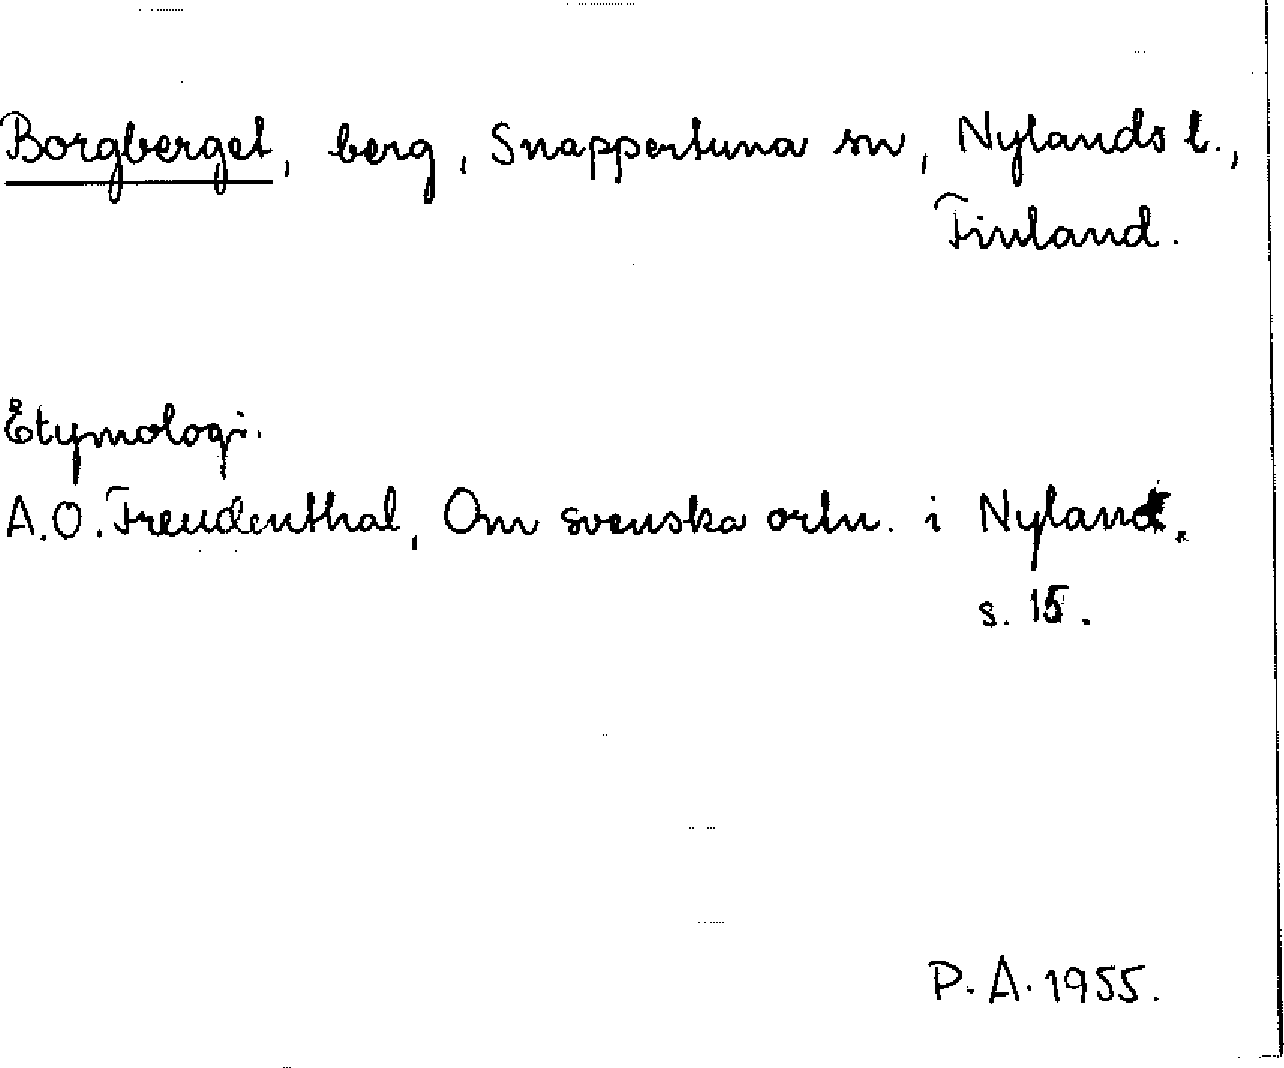 Borgberget, berg, Snappertuna sn, Nylands l.,
Finland.
Etymologi.
A.O. Freudenthal, Om svenska ortn. i Nyland.
s. 15.
P. A. 1955.